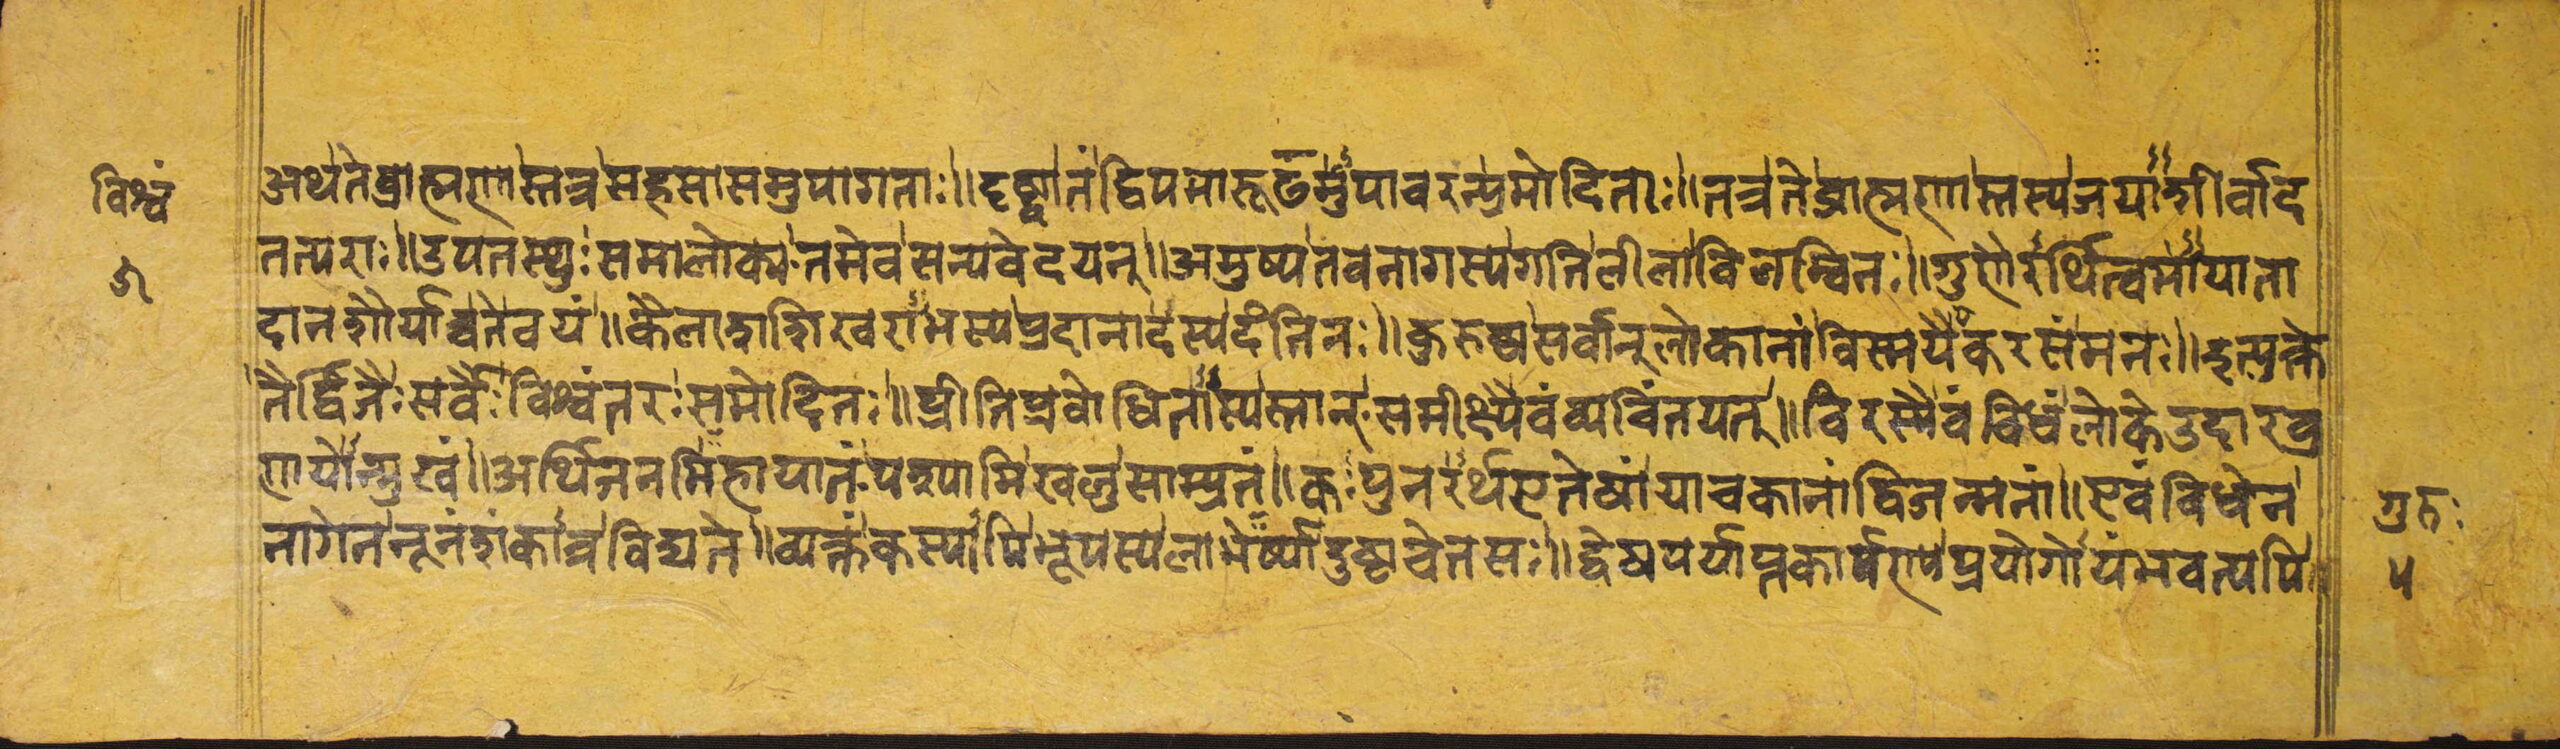 विश्वं
७
अथ ते ब्राह्मणास्तत्र सहसा समुपागताः॥ दृष्ट्वा तं द्विपमारूढमुपाचरन्प्रमोदिताः॥ तत्र ते ब्राह्मणास्तस्य जयाशीर्वाद
तत्पराः॥ उपतस्थुः समालोक्य तमेव संन्यवेदयन्॥ अमुष्य तव नागस्य गतिलीलाविडम्बिनः॥ गुणैरर्थित्वमायाता
दानशौर्याच्च ते वयं॥ कैलाशशिखराभस्य प्रदानादस्य दंतिनः॥ कुरुष्व सर्वान् लोकानां विस्मयैकरसं मनः॥ इत्युक्ते
तैर्द्विजैः सर्वैः विश्वंतरः समोदितः॥ प्रीतिप्रबोधितास्यस्तान् समीक्ष्यैवं व्यचिंतयत्॥ चिरस्यैवंविधं लोके उदारप्र
णयोन्मुखं॥ अर्थिजनमिहायातं पश्यामि खलु साम्प्रतं॥ कः पुनरर्थ एतेषां याचकानां द्विजन्मनां॥ एवंविधेन
नागेन नूनं शंकात्र विद्यते॥ व्यक्तं कस्यापि भूपस्य लाभेर्ष्यादुष्टचेतसः॥ द्वेषपर्याप्तकार्पण्यप्रयोगोयं भवत्यपि
गुरुः
५